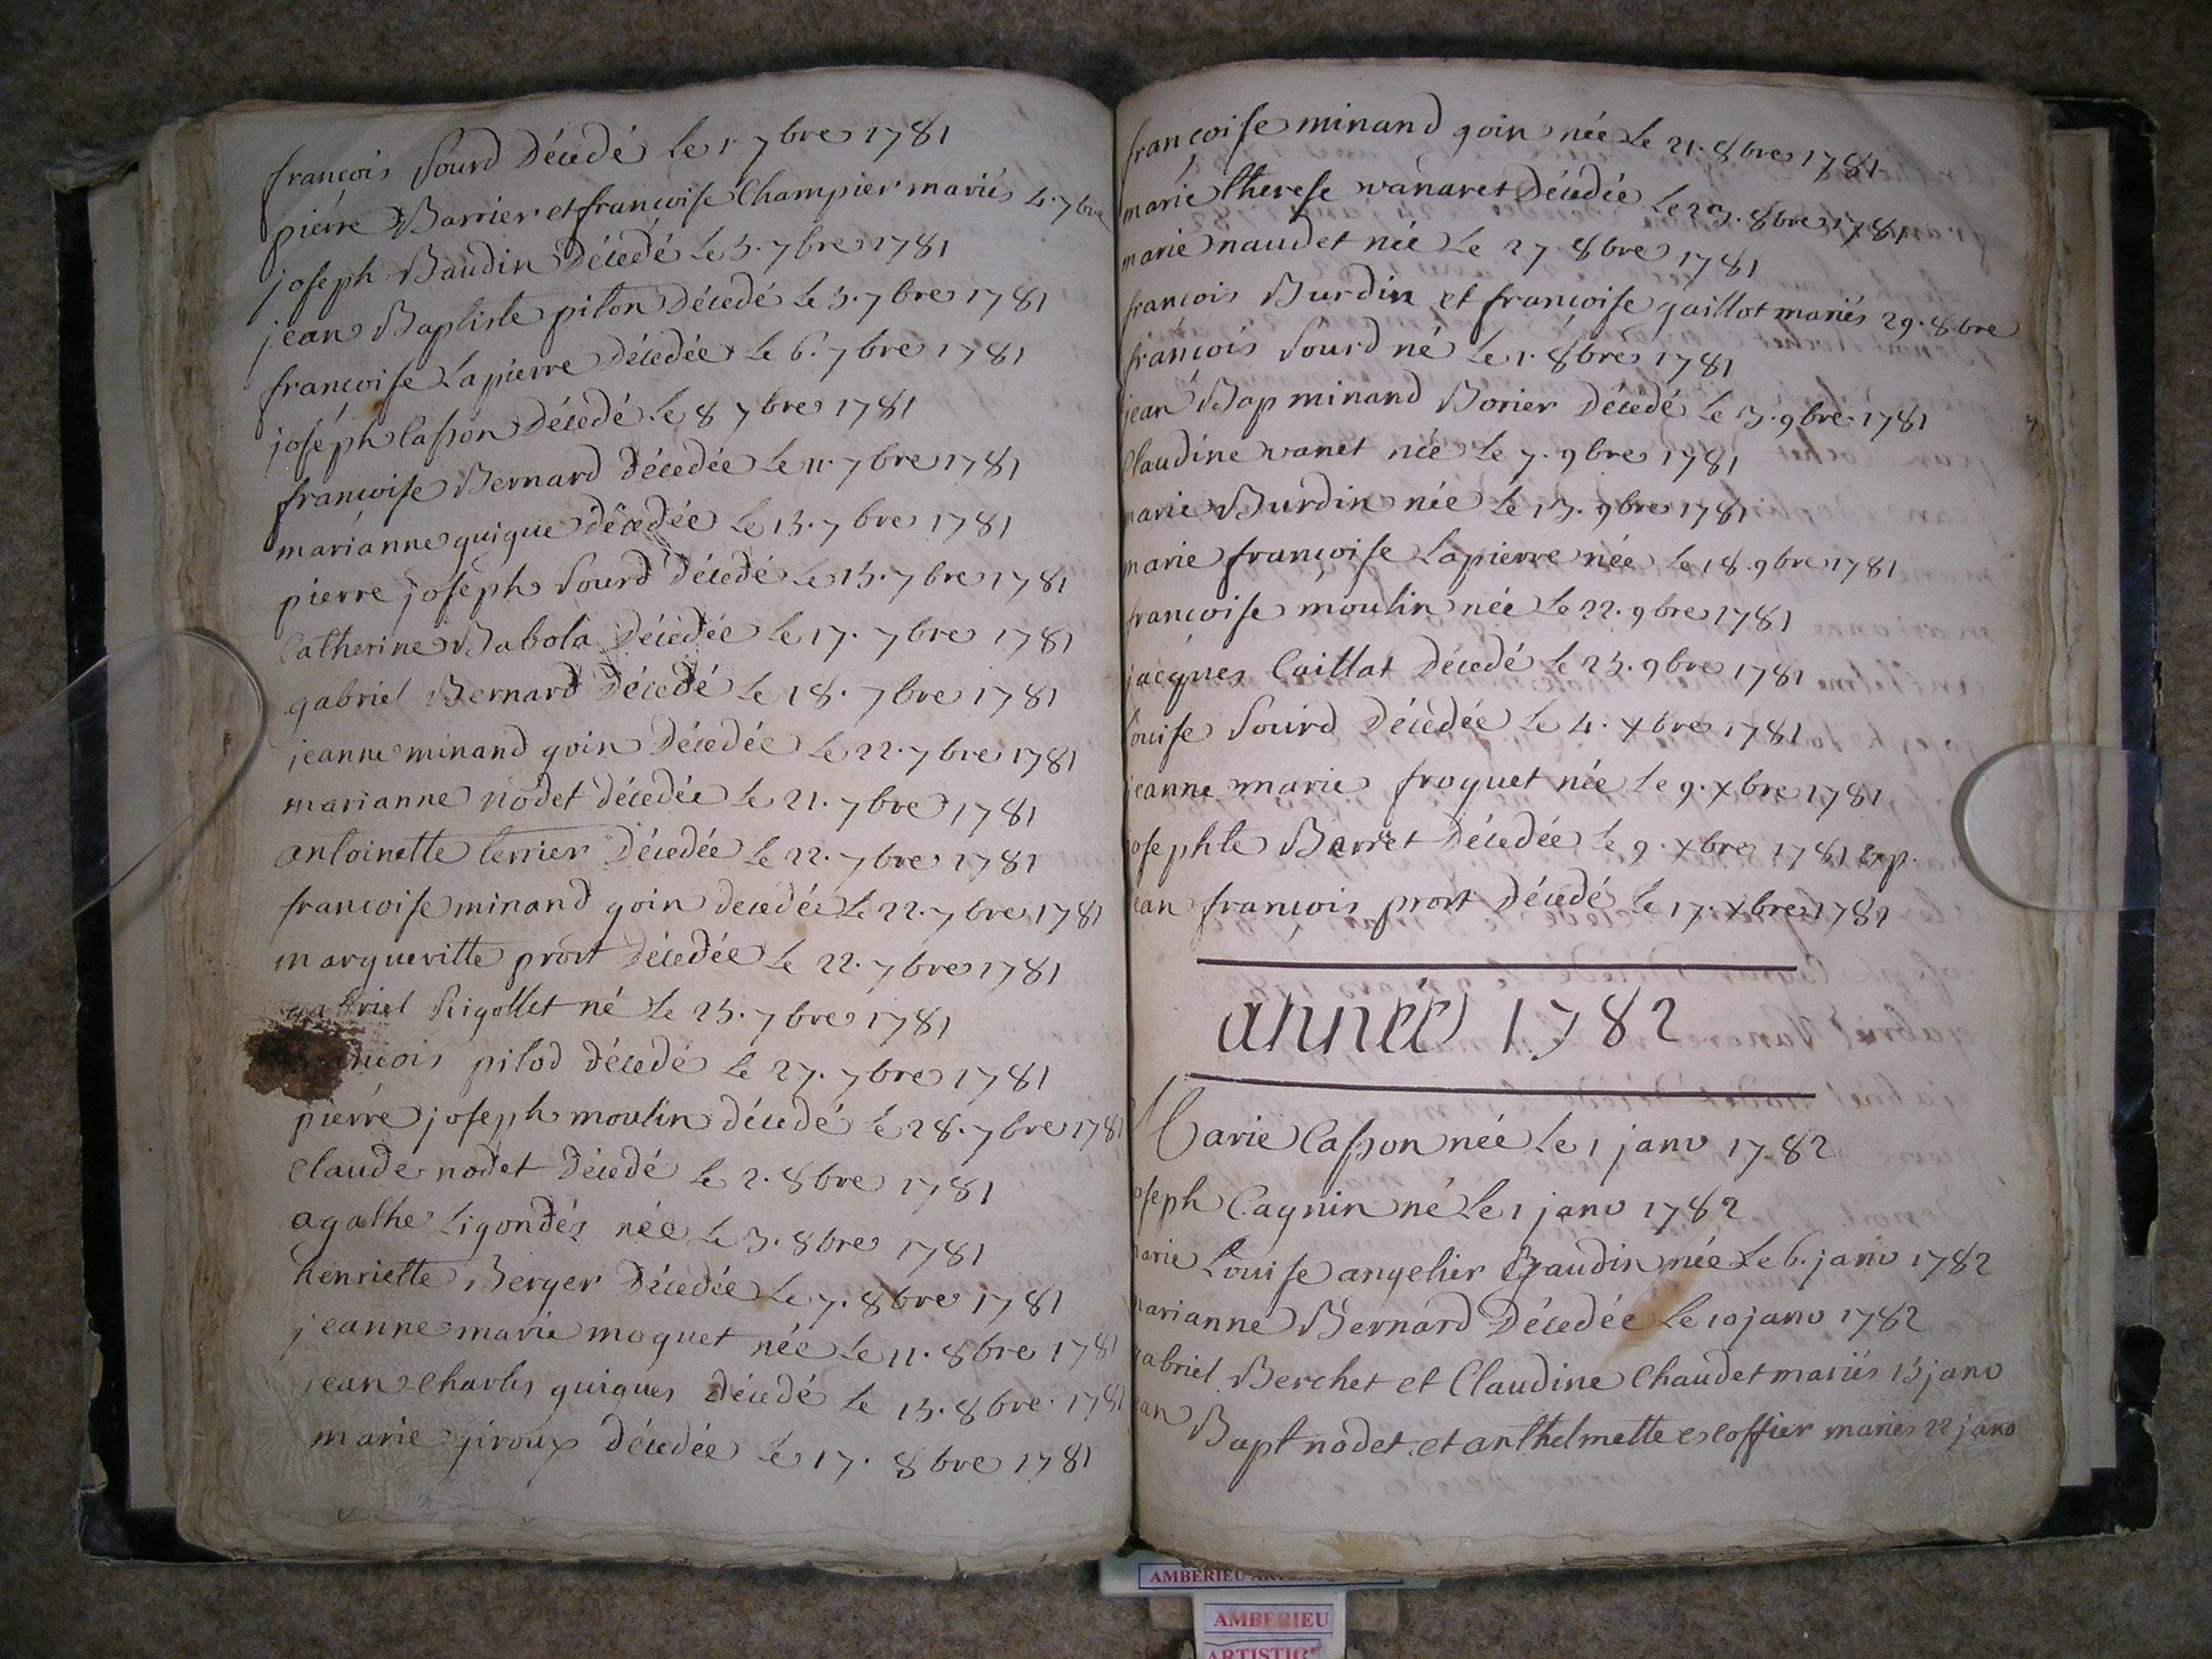 françois Sourd décedé le 1. 7bre 1781
pierre Barrier et françoise Champier mariés 4. 7bre
joseph Baudin décedé le 5. 7bre 1781
jean Baptiste piton décedé le 5. 7bre 1781
françoise Lapierre décedée le 6. 7bre 1781
joseph Casson décedé le 8 7bre 1781
françoise Bernard décedée le 11. 7bre 1781
marianne guigue décedée le 13. 7bre 1781
pierre joseph Sourd décedé le 15. 7bre 1781
Catherine Babola décedée le 17. 7bre 1781
gabriel Bernard décedé le 18. 7bre 1781
jeanne minand goin décedée le 22. 7bre 1781
marianne nodet décedée le 21. 7bre 1781
antoinette terrier décedée le 22. 7bre 1781
françoise minand goin decedée le 22. 7bre 1781
margueritte prost décedée le 22. 7bre 1781
gabriel Rigollet né le 25. 7bre 1781
ançois pitod décedé le 27. 7bre 1781
pierre joseph moulin décedé le 28. 7bre 1781
Claude nodet décedé le 2. 8bre 1781
agathe Ligondés née le 3. 8bre 1781
henriette Berger décedée le 7. 8bre 1781
jeanne marie moguet née le 11. 8bre 1781
jean Charles guigues décedé le 15. 8bre. 1781
marie giroux décedée le 17. 8bre 1781
françoise minand goin née le 21. 8bre 1781
marie therese vanaret décedée le 23. 8bre 1781
marie naudet née le 27 8bre 1781
françois Burdin et françoise gaillot mariés 29. 8bre
françois Sourd né le 1. 8bre 1781
jean Bap minand Borier décedé le 3. 9bre 1781
Claudine vanet née le 7. 9bre 1781
marie Burdin née le 13. 9bre 1781
marie françoise Lapierre née le 18. 9bre 1781
françoise moulin née le 22. 9bre 1781
jacques Caillat décedé le 25. 9bre 1781
louise Sourd décedée le 4. xbre 1781
jeanne marie froquet née le 9. xbre 1781
josephte Barret décedée le 9. xbre 1781 exp.
jean françois prost décedé le 17. xbre 1781
année 1782
Marie Casson née le 1 janv 1782
joseph Cagnin né le 1 janv 1782
marie Louise angelier Gaudin née le 6. janv 1782
marianne Bernard décedée le 10 janv 1782
gabriel Berchet et Claudine Chaudet mariés 15 janv
jean Bapt nodet et anthelmette escoffier mariés 22 janv
AMBERIEU
AMBERIEU
ARTISTIQ